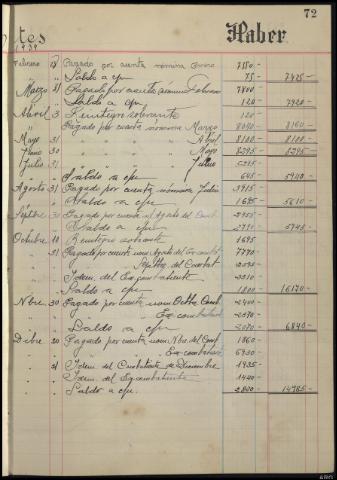 72
tes Haber
1939
Febrero 28 Pagado por cuenta nómina Enero 7350-
" " Saldo a c/n 75- 7425-
Marzo 31 Pagado por cuenta nómina Febrero 7800
" " Saldo a c/n 120- 7920-
Abril 3 Reintegro sobrante 120-
" Pagado por cuenta nómina Marzo 8040- 8160-
Mayo 31 " " " " Abril 8100- 8100-
Junio 30 " " " " Mayo 8295- 8295-
Julio 31 " " " " Junio 5295-
" " Saldo a c/n 645 5940-
Agosto 31 Pagado por cuenta nómina Julio 3915-
" " Saldo a c/n 1695 5610-
Septbre 30 Pagado por cuenta n/ Agosto del Comb.
" " Saldo a c/n 5745-
Octubre 10 Reintegro sobrante 1695
" 31 Pagado por cuenta nom Agosto del Excombat 7770-
" Septbre del Combat
" Idem. del Excombatiente
Saldo a c/n 1800 16170-
Nbre. 30 Pagado por cuenta nom Octbre Comb. 2400
" " Excombatiente
Saldo a c/n 2070 6840-
Dibre. 20 Pagado por cuenta nom Nbre. del Comb 1860
" " Excombatiente 6930
" 31 Idem. del Combatiente de Diciembre 1935
" Idem. del Excombatiente
Saldo a c/n. 14985-